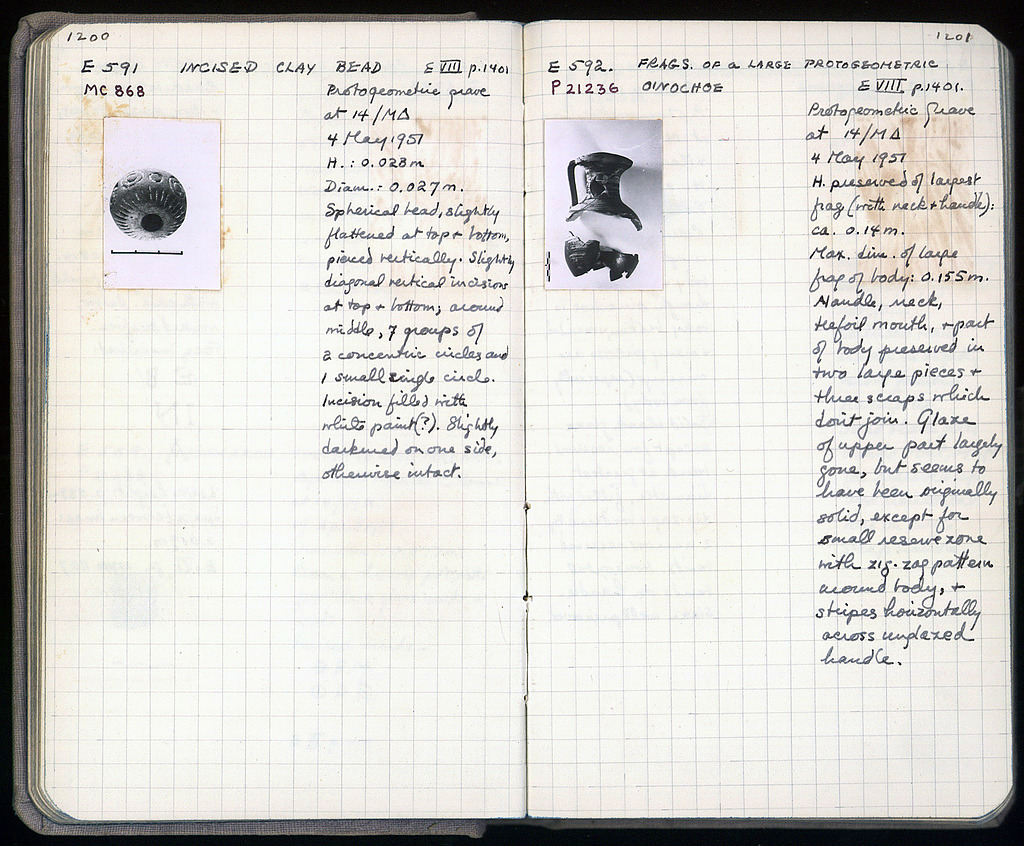 1200
E 591 INCISED CLAY BEAD E VIII p.1401
MC 868
Protogeometric grave
at 14/ΜΔ
4 May 1951
H.: 0.028m
Diam.: 0.027m.
Spherical bead, slightly
flattened at top + bottom,
pierced vertically. Slightly
diagonal vertical incisions
at top + bottom; around
middle, 7 groups of
2 concentric circles and
1 small single circle.
Incision filled with
white paint(?). Slightly
darkened on one side,
otherwise intact.
1201
E 592. FRAGS. OF a LARGE PROTOGEOMETRIC
P 21236 OINOCHOE E VIII p.1401.
Protogeometric Grave
at 14/ΜΔ
4 May 1951
H. preserved of largest
frag (with neck + handle):
ca. 0.14m.
Max. dim. of large
frag of body: 0.155m.
Handle, neck,
trefoil mouth, + part
of body preserved in
two large pieces +
three scraps which
don't join. Glaze
of upper part largely
gone, but seems to
have been originally
solid, except for
small reserve zone
with zig-zag pattern
around body, +
stripes horizontally
across unglazed
handle.